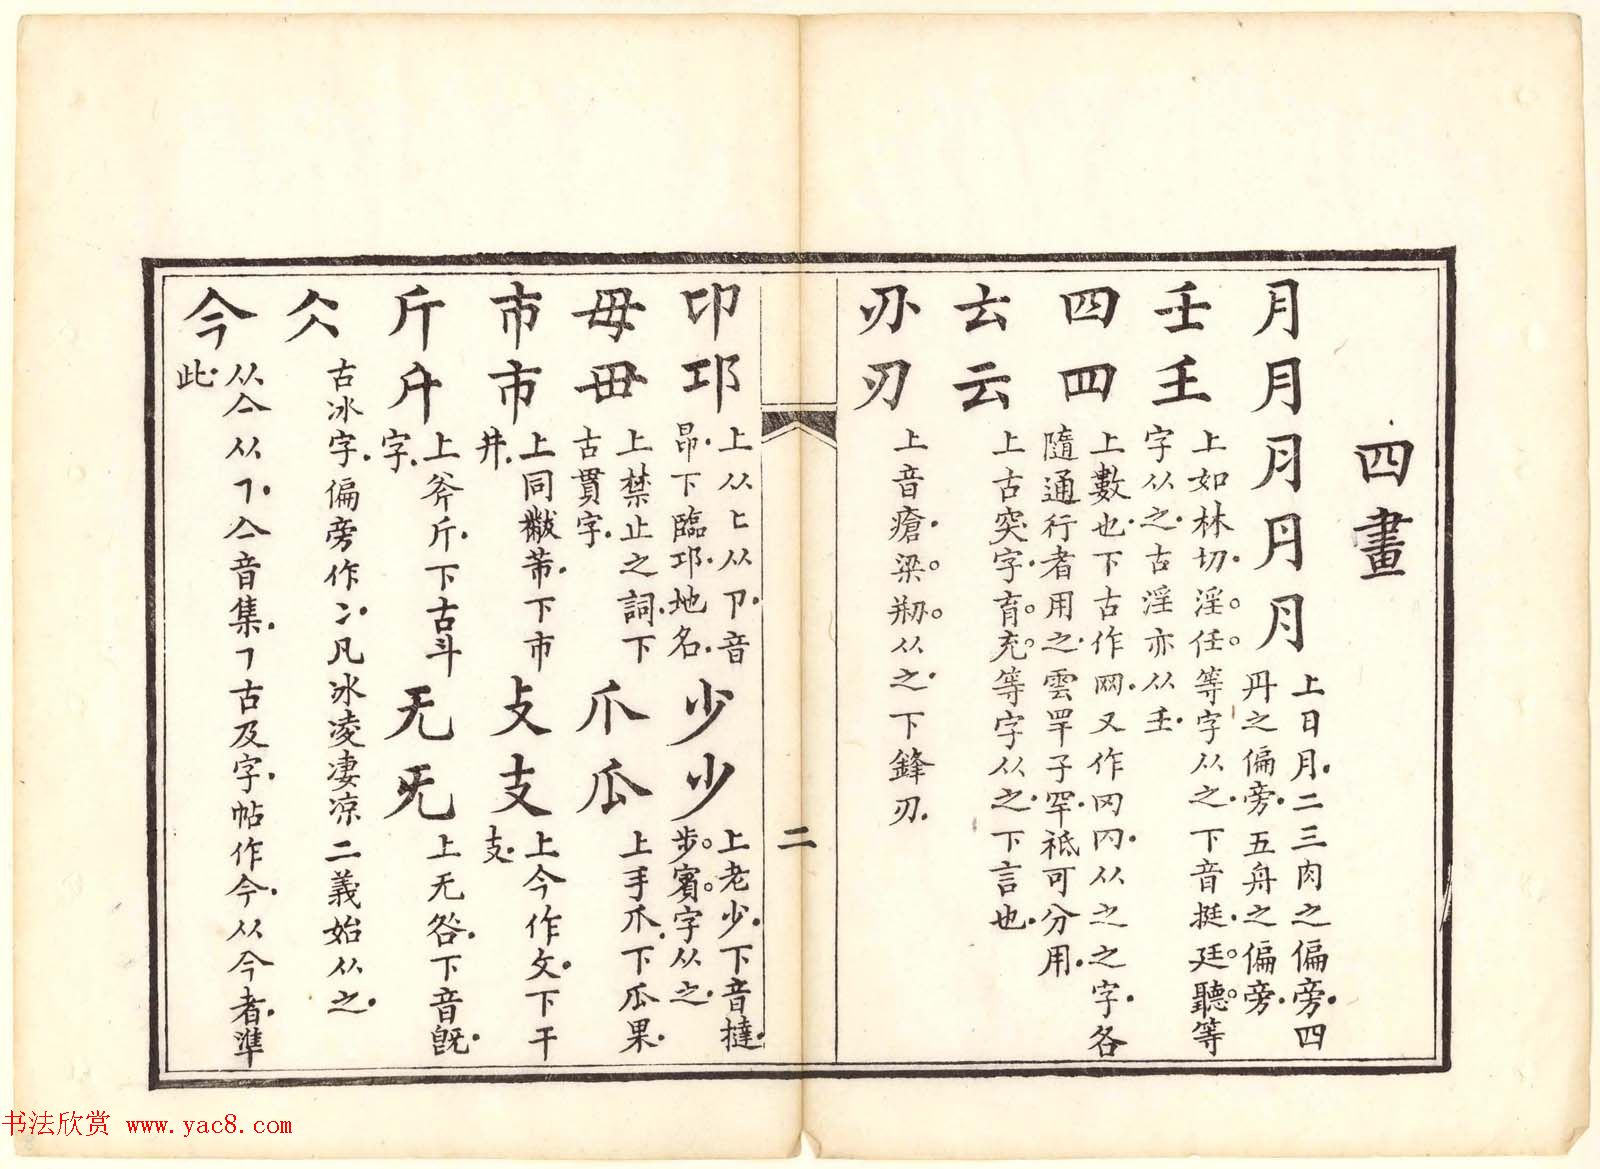 四畫
月月月丹月
上日月二三肉之偏旁四
丹之偏旁五舟之偏旁
壬𡈼
上如林切淫任等字从之下音挺廷聽等
字从之古淫亦从𡈼
四四
上數也下古作网又作冈冈从之之字各
隨通行者用之雲罕子罕祇可分用
𠫓云
上古突字育充等字从之下言也
刅刃
上音瘡梁剏从之下鋒刃
二
卬邛
上从匕从卩音
昂下臨邛地名
少少
上老少下音撻
步賓字从之
毋毌
上禁止之詞下
古貫字
爪瓜
上手爪下瓜果
巿市
上同黻芾下市
井
攴支
上今作攵下干
支
斤斗
上斧斤下古斗
字
无旡
上无咎下音旣
仌
古冰字偏旁作冫凡冰凌凄凉二義始从之
今
从亼从㇕亼音集㇕古及字帖作今从今者準
此
书法欣赏 www.yac8.com